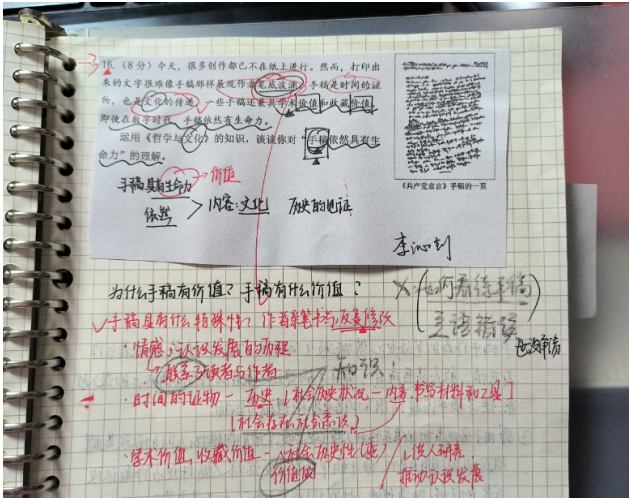 16.（8分）今天，很多创作都已不在纸上进行。然而，打印出
来的文字很难像手稿那样展现作者笔底波澜。手稿是时间的证
物，也是文化的传递，一些手稿还兼具学术价值和收藏价值。
即使在数字时代，手稿依然有生命力。
运用《哲学与文化》的知识，谈谈你对“手稿依然具有生
命力”的理解。
《共产党宣言》手稿的一页
手稿具有生命力 价值
依然
内容：文化 历史的见证
为什么手稿有价值？手稿有什么价值？
如何看待手稿
手稿具有什么特殊性？作者亲笔书写，反复修改
情感；认识发展的历程
联系了读者与作者
知识：
时间的证物－历史｛社会历史状况－内容，书写材料和工具｝
｛社会存在，社会意识
学术价值，收藏价值－社会历史性
价值的
供人研究，
推动认识发展